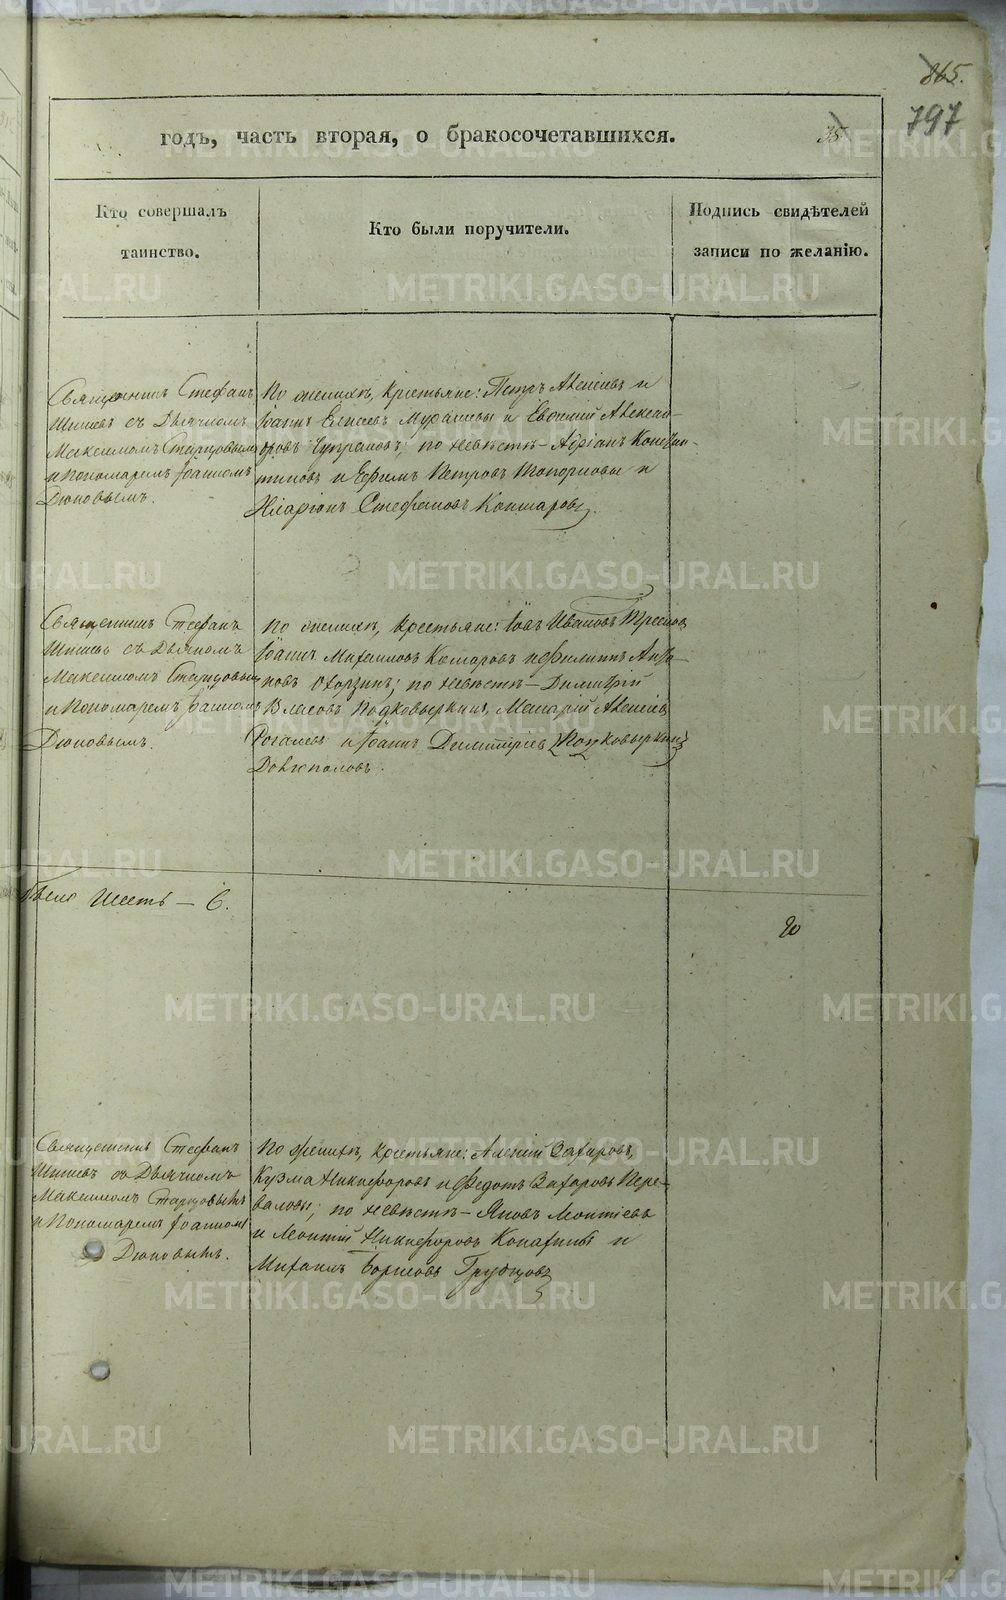 865.
797
35
годъ, часть вторая, о бракосочетавшихся.
Кто совершалъ
таинство.
Кто были поручители.
Подпись свидѣтелей
записи по желанію.
Священникъ Стефанъ
Шишевъ съ Дьячкомъ
Максимомъ Старцовымъ
и Пономаремъ Іоанномъ
Дюковымъ.
По женихѣ, крестьяне: Петръ Алексѣевъ и
Іоаннъ Елисеевъ Мурашевы и Евѳимій Алексан-
дровъ Чупраловъ; по невѣстѣ – Адріанъ Констан-
тиновъ и Ефимъ Петровъ Топорковы и
Иларіонъ Стефановъ Кокшаровъ.
Священникъ Стефанъ
Шишевъ съ Дьячкомъ
Максимомъ Старцовымъ
и Пономаремъ Іоанномъ
Дюковымъ.
По женихѣ, крестьяне: Іовъ Ивановъ
Іоаннъ Михаиловъ Комаровъ и Филиппъ
по невѣстѣ – Димитрій
Власовъ Подковыркинъ, Макарій Алексѣевъ
Рогалевъ и Іоаннъ Димитріевъ {Подковыркинъ}
было шесть – 6.
20
Священникъ Стефанъ
Шишевъ съ Дьячкомъ
Максимомъ Старцовымъ
и Пономаремъ Іоанномъ
Дюковымъ.
По женихѣ, крестьяне: Алексій Захаровъ,
Кузма Никифоровъ и Федотъ Захаровъ Пере-
валовы; по невѣстѣ – Яковъ Леонтіевъ
и Леонтій Никифоровъ Копатины и
Михаилъ Борисовъ Грубцовъ
METRIKI.GASO-URAL.RU